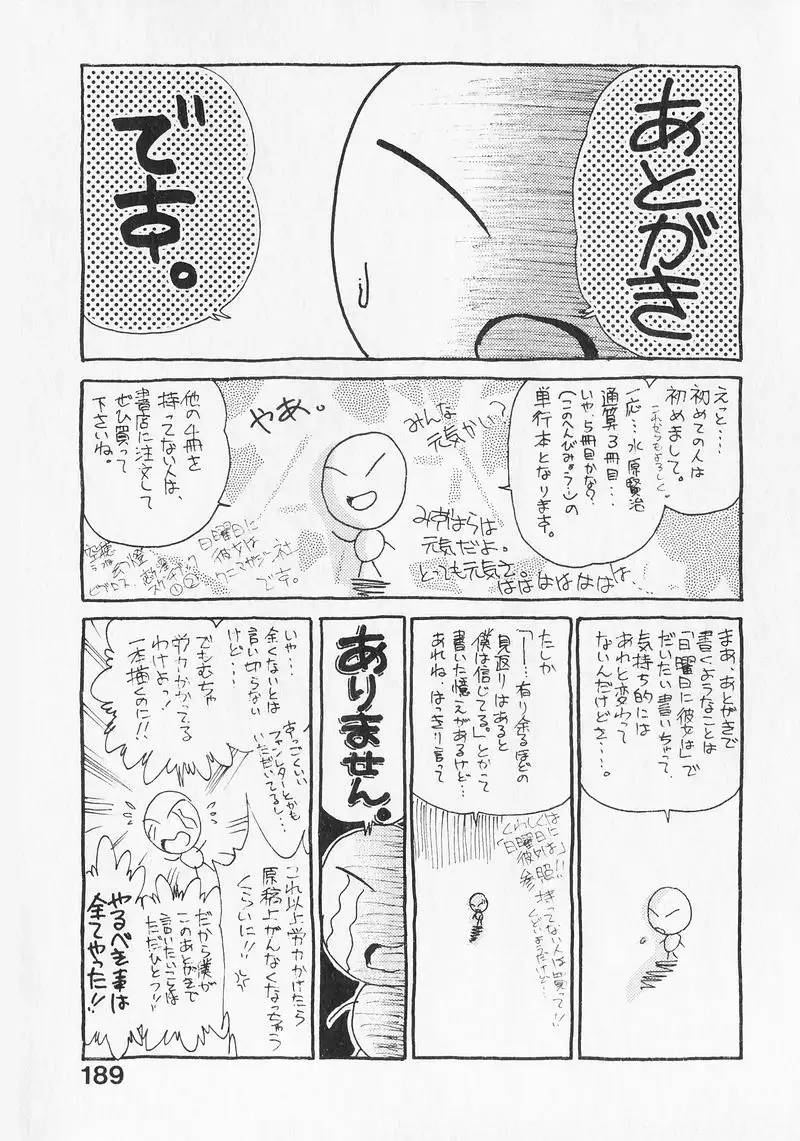 あとがき
です。
えっと…
初めての人は
初めまして。
これからもよろしく。
一応…水原賢治
通算3冊目…
いや、5冊目かな?
(このへんびみょうー)の
単行本となります。
みんな
元気かい?
やあ。
みずはらは
元気だよ。
とっても元気さ
ははははははは…
他の4冊を
持ってない人は、
書店に注文して
ぜひ買って
下さいね。
日曜日に
彼女は
ワニマガジン社
です。
①②
まあ、あとがきで
書くようなことは
「日曜日に彼女は」で
だいたい書いちゃって、
気持ち的には
あれと変わって
ないんだけどさ…。
たしか
「!…有り余るほどの
見返りはあると
僕は信じてる。」とかって
書いた憶えがあるけど…
あれね、はっきり言って
くわしくは
「日曜日に
彼女は」
参照!!
持ってない人は買って!!
くどいようだけど…
ありません。
いや…
全くないとは
言い切らない
けど…
すっごくいい
ファンレターとかも
いただいてるし…
でもむちゃ
労力かかってる
わけよっ!
一本描くのに!!
これ以上労力かけたら
原稿上がんなくなっちゃう
くらいに!!
だから僕が
このあとがきで
言いたいことは
ただひとつ!!
やるべき事は
全てやった!!
189